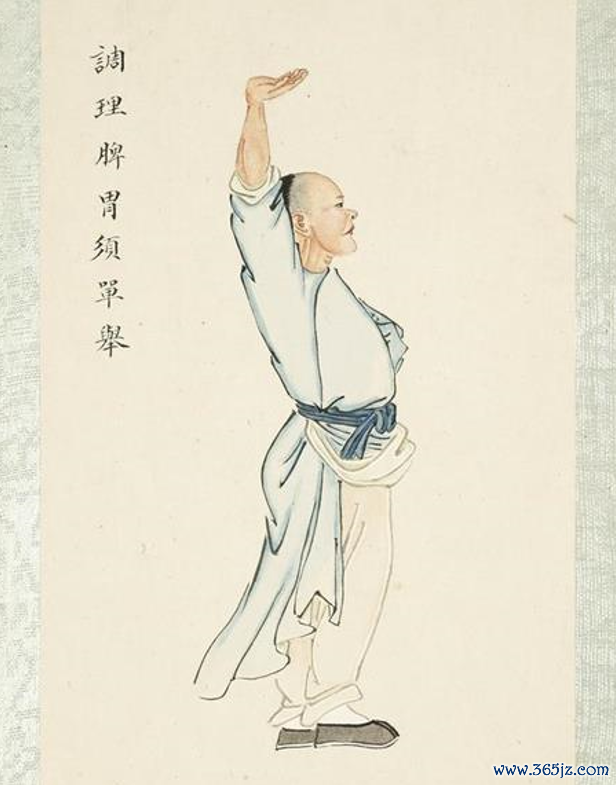 調理脾胃須單舉
www.365jz.com